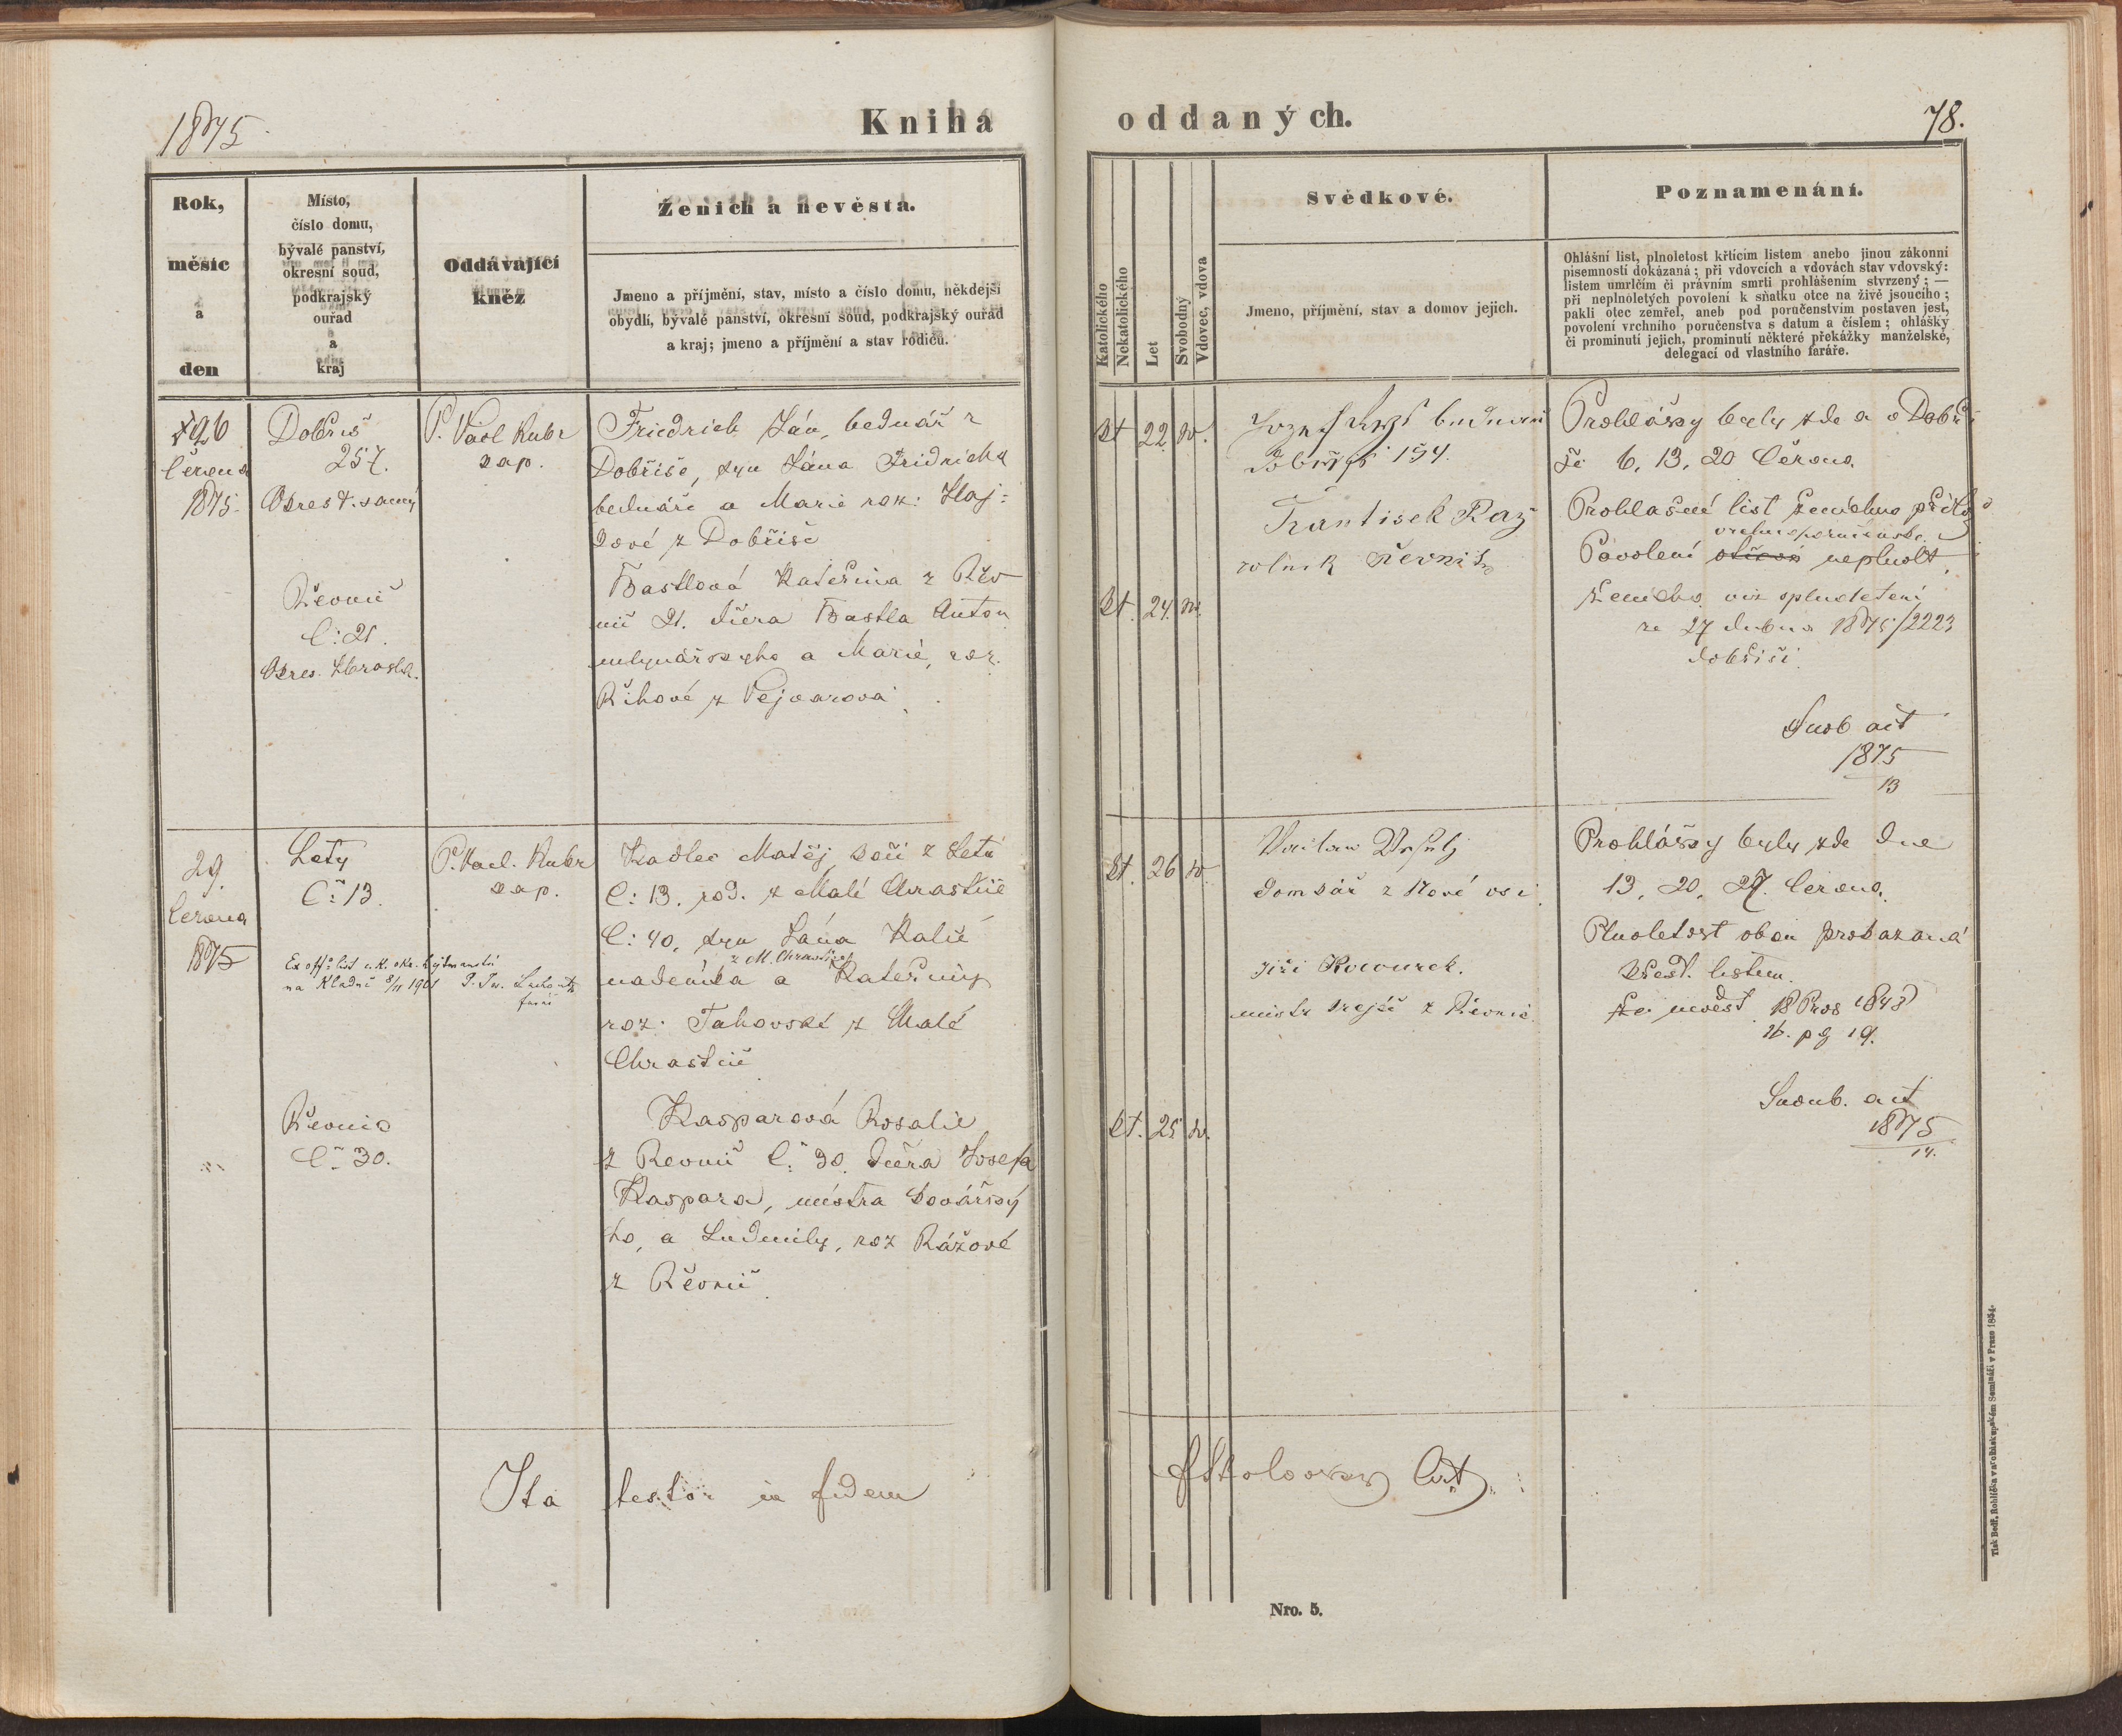 1875
Kniha oddaných.
78.
Rok,
měsíc
a
den
Místo,
číslo domu,
bývalé panství,
okresní soud,
podkrajský
ouřad
a
kraj
Oddávající
kněz
Ženich a nevěsta.
Jmeno a příjmění, stav, místo a číslo domu, někdejší
obydlí, bývalé panství, okresní soud, podkrajský ouřad
a kraj; jmeno a příjmění a stav rodičů.
Katolického
Nekatolického
Let
Svobodný
Vdovec, vdova
Svědkové.
Jmeno, příjmění, stav a domov jejich.
Poznamenání.
Ohlášní list, plnoletost křticím listem anebo jinou zákonní
písemností dokázaná; při vdovcích a vdovách stav vdovský:
listem umrlčím či právním smrti prohlášením stvrzený; —
při neplnoletých povolení k sňatku otce na živě jsoucího;
pakli otec zemřel, aneb pod poručenstvím postaven jest,
povolení vrchního poručenstva s datum a číslem; ohlášky
či prominutí jejich, prominutí některé překážky manželské,
delegací od vlastního faráře.
26
Června
1875.
Dobříš
257.
Okres t. samý
P. Václ Kubr
kap.
Friedrich Ján, bednář z
Dobříše, syn Jána Fridricha
bednáře a Marie roz: Haj-
dové z Dobříše
Řevnic
Č: 21.
Okres. Zbraslav.
Bastlová Kateřina z Řev
nic 21. dcera Bastla Anton
mlynářského a Marie, roz.
Říhové z Vejvarova
kt 22 sv.
Dobříš 154.
František Ráž
rolník Řevnic
kt. 24. sv.
Prohlášky byly zde a v Dobří
ši 6, 13, 20 Června.
Prohlašení list ženichův přílo
Povolení otcovo neplnolt.
ženicha viz
ze 27 dubna 1875/2223
Dobříši.
Snub act
1875
13
29.
Června
1875
Lety
Č: 13.
P. Vacl. Kubr
kap.
Ex offo list c. k. okr. hejtmanství
na Kladně 8/11 1901
farář
Kadlec Matěj, kočí z Letů
Č: 13. rod. z Malé Chrastice
Č: 40, syn Jána Kadlec
z M. Chrastice
nadeníka a Kateřiny
roz. Tahovské z Malé
Chrastice
Řevnic
Č: 30.
Kasparová Rosalie
z Řevnic Č: 30. dcera Josefa
Kaspara, mistra kovářský
ho, a Ludmily, roz Rážové
z Řevnic
kt. 26 sv.
domkář z Nové vsi
Jiří Kocourek.
mistr krejčí z Řevnic.
kt. 25 sv.
Prohlášky byly zde dne
13, 20, 27. Června.
Plnoletost obou prokazaná
křest. listem
18 Pros 1848
16. pg 19.
Snoub. act
1875
14.
Ita testor in fidem
Tisk Bedř. Rohlíčka v arcibiskupském Semináři v Praze 1854.
Nro. 5.